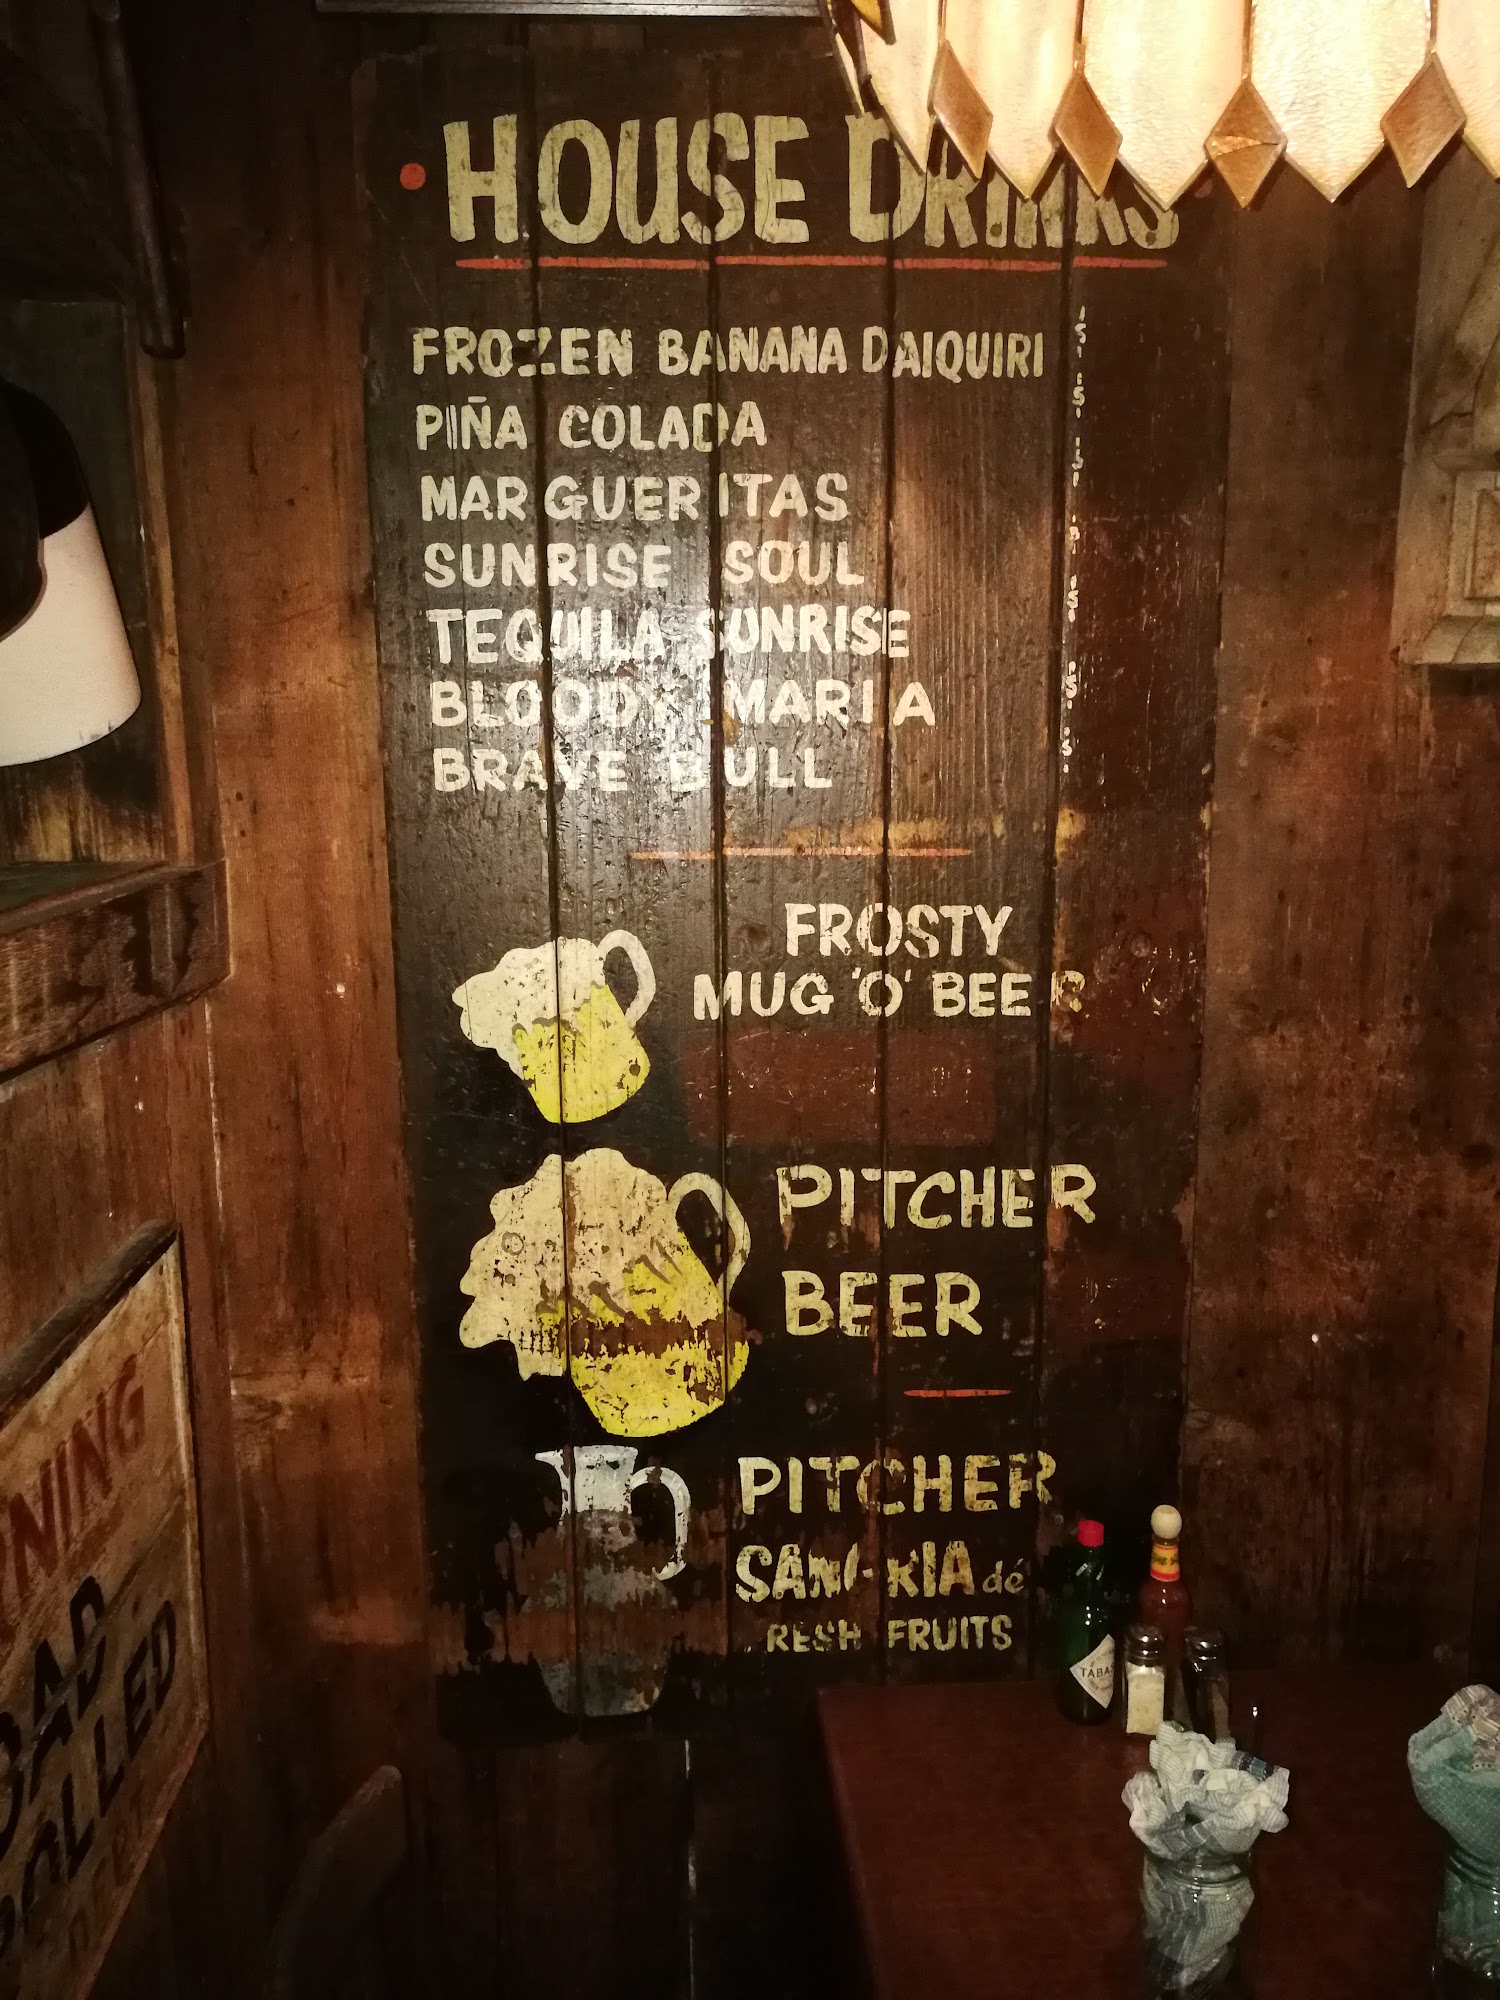 HOUSE DRINKS
FROZEN BANANA DAIQUIRI
PIÑA COLADA
MARGUERITAS
SUNRISE SOUL
TEQUILA SUNRISE
BLOODY MARIA
BRAVE BULL
FROSTY
MUG 'O' BEER
PITCHER
BEER
PITCHER
SANGRIA dé
FRESH FRUITS
TABA
RNING